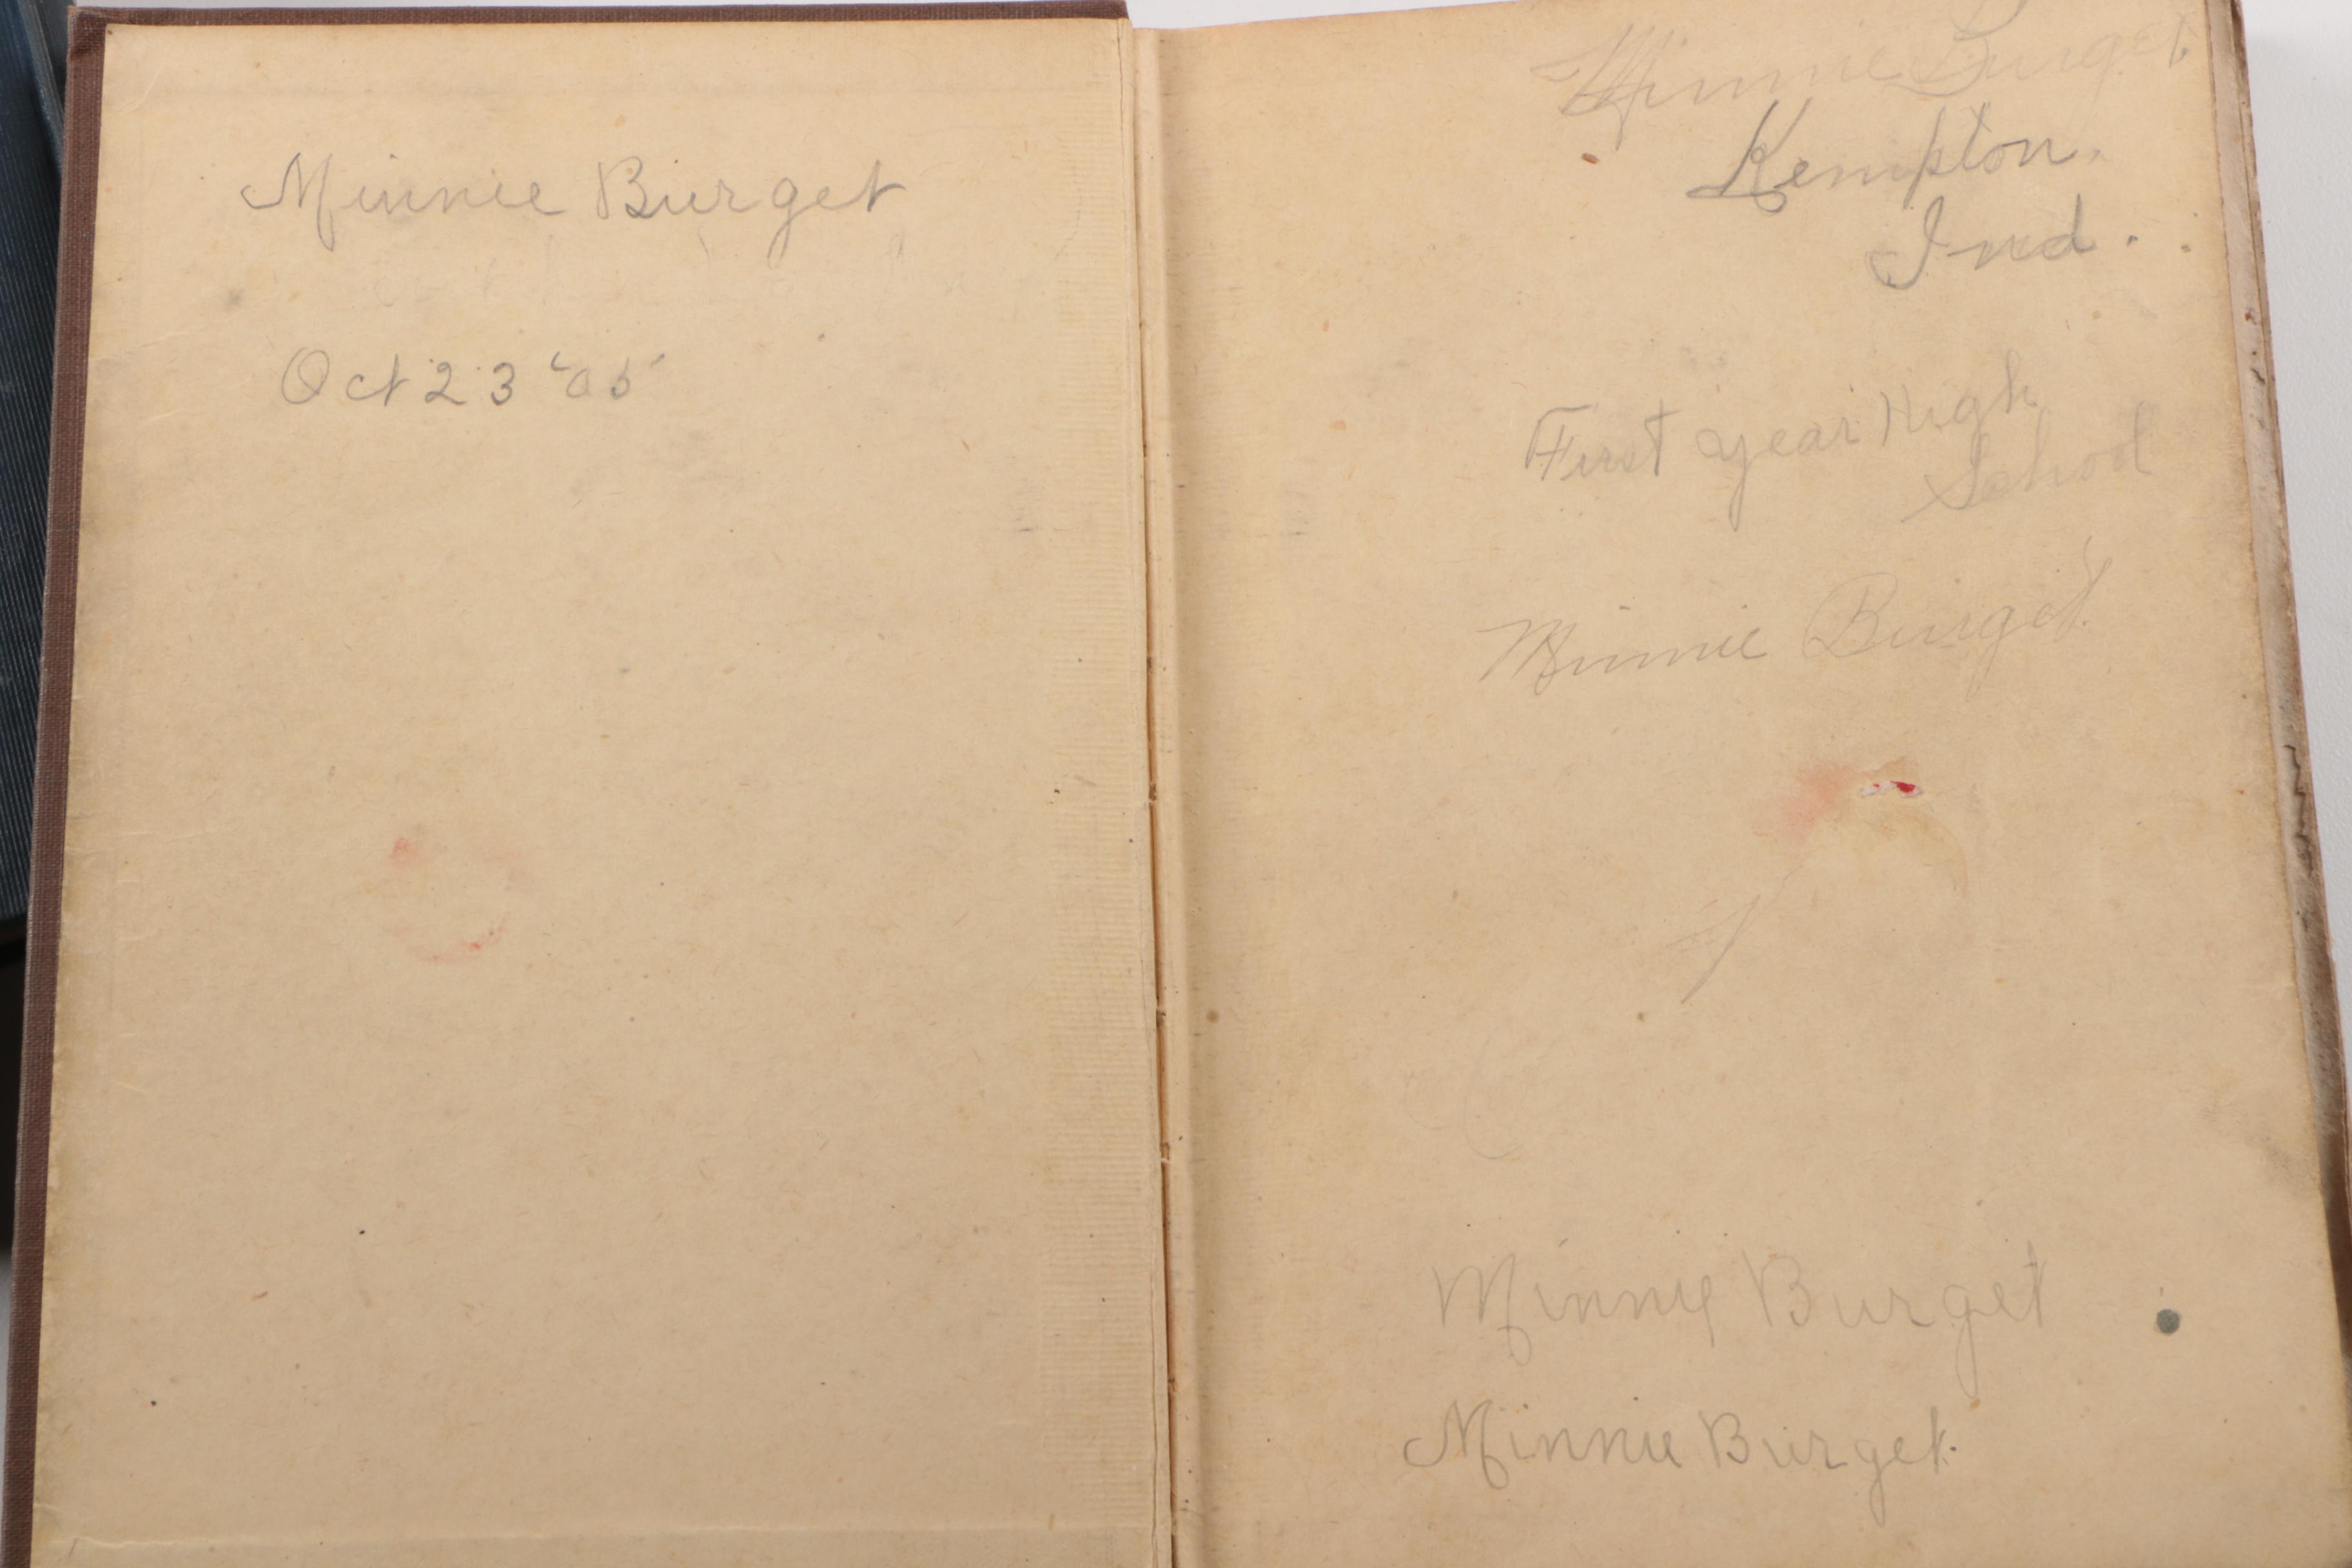 Minnie Burget
Oct 23 '05
Minnie Burget
Kempton.
Ind.
First year High
School
Minnie Burget.
Minnie Burget
Minnie Burget.